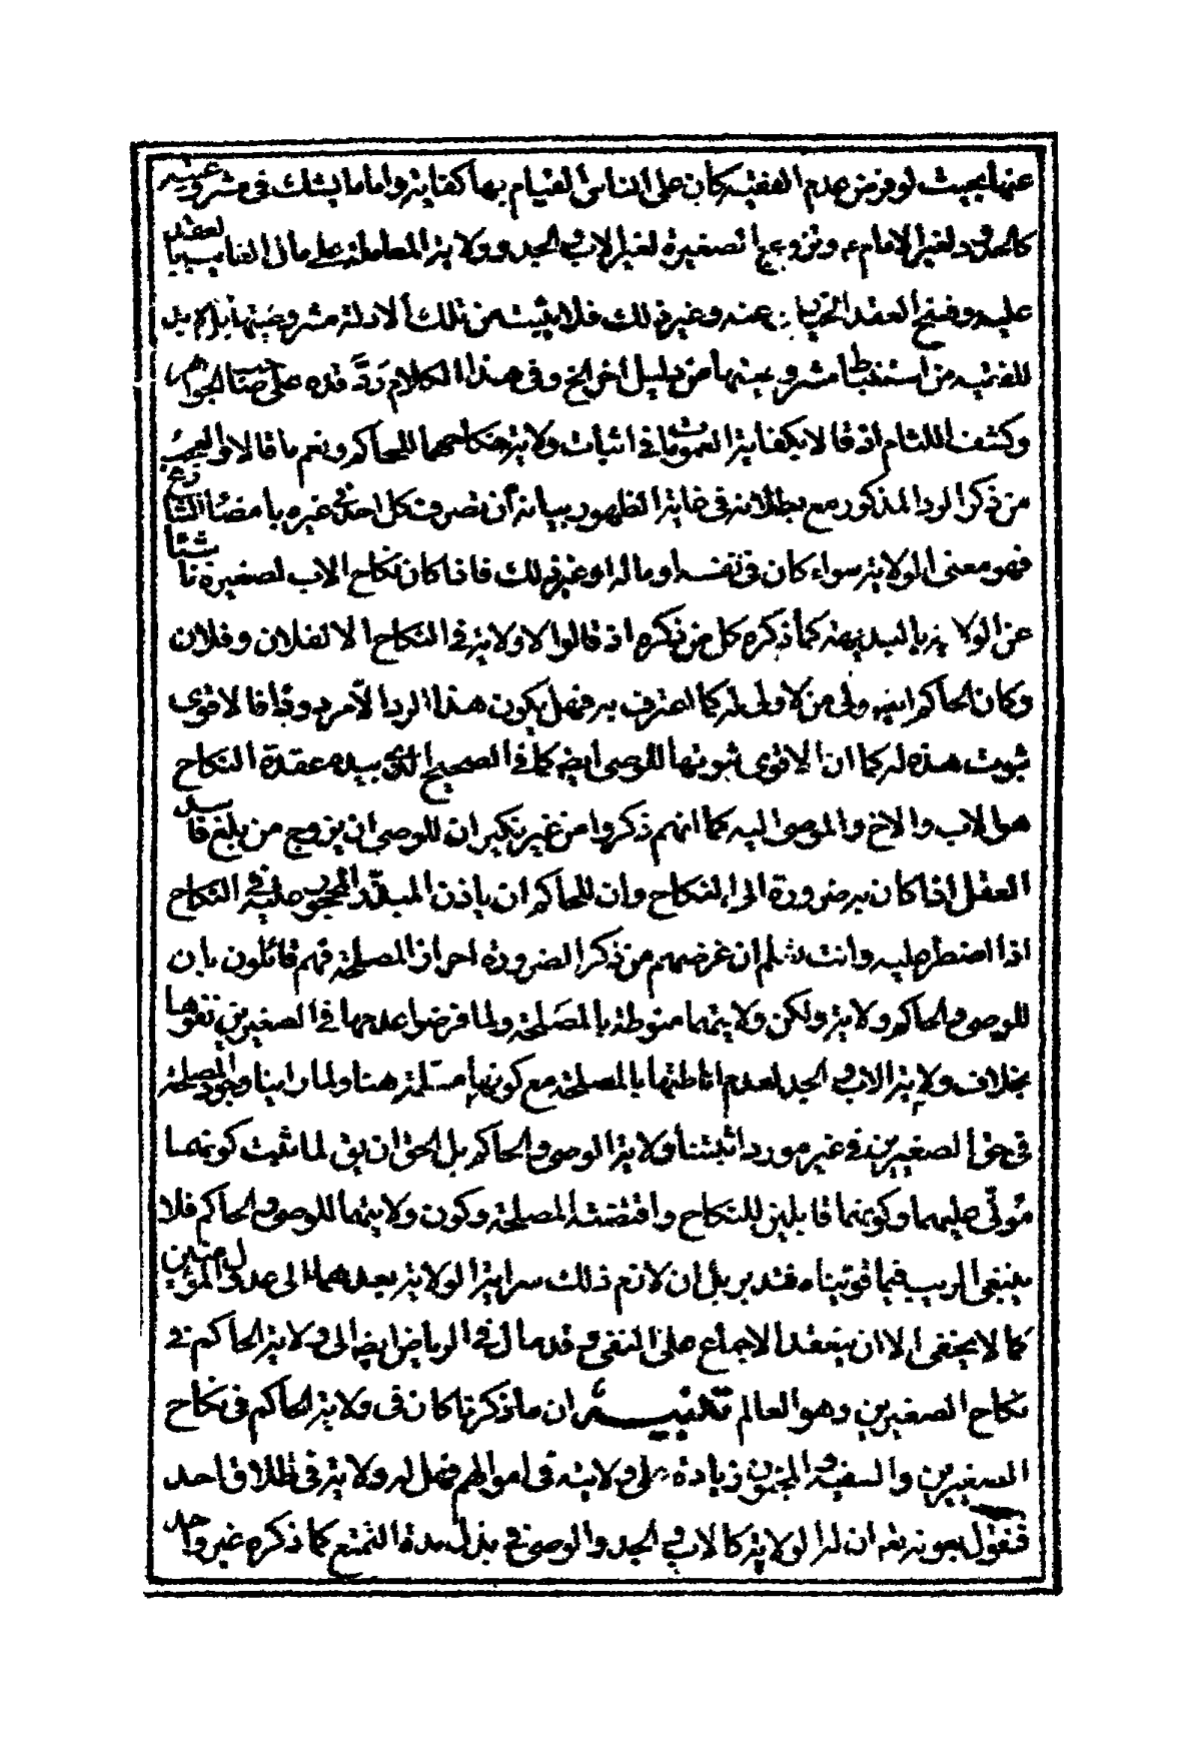 عنها بحيث لو فرض عدم الفقيه كان على الناس القيام بها كفاية واما ما يشك في مشروعيته
كالحدود لغير الامام ع وتزويج الصغيرة لغير الاب والجد وولاية المعاملة على مال الغائب بالعقد
عليه وفسخ العقد الخياري عنه وغير ذلك فلا يثبت من تلك الادلة مشروعيتها بل لا بد
للفقيه من استنباط مشروعيتها من دليل اخر الخ وفي هذا الكلام ردّ قده على صاحب الجواهر
وكشف اللثام اذ قالا بكفاية العمومات في اثبات ولاية نكاحهما للحاكم ونعم ما قالا والعجب
من ذكر الرد المذكور مع بطلانه في غاية الظهور بيانه أن تصرف كل احد في غيره بامضاء الشارع
فهو معنى الولاية سواء كان في نفسه او ماله او غير ذلك فاذا كان نكاح الاب لصغيرة ناشئا
عن الولاية بالبديهة كما ذكره كل من ذكره اذ قالوا لا ولاية في النكاح الا لفلان وفلان
وكان الحاكم ايضه ولى من لا ولى له كما اعترف به فهل يكون هذا الرد الا مردودا فالاقوى
ثبوت هذه له كما ان الاقوى ثبوتها للوصى ايضه كما في الصحيح الذي بيده عقدة النكاح
هو الاب والاخ والموصى اليه كما انهم ذكروا من غير نكير ان للوصي ان يزوج من بلغ فاسد
العقل اذا كان به ضرورة الى النكاح وان للحاكم ان ياذن المبذّر المحجور عليه في النكاح
اذا اضطر عليه وانت تعلم ان غرضهم من ذكر الضرورة احراز المصلحة فهم قائلون بان
للوصى والحاكم ولاية ولكن ولايتهما منوطة بالمصلحة ولما فرضوا عدمها في الصغيرين نفوها
بخلاف ولاية الاب والجد لعدم اناطتها بالمصلحة مع كونها مسلمة هنا ولما راينا وجود المصلحة
في حق الصغيرين في غير مورد اثبتنا ولاية الوصى والحاكم بل الحق ان يق لما ثبت كونهما
مولّى عليهما وكونهما قابلين للنكاح واقتضته المصلحة وكون ولايتهما للوصى والحاكم فلا
ينبغي الريب فيما قويناه فتدبر بل ان لازم ذلك سراية الولاية بعدهما الى عدول المؤمنين
كما لا يخفى الا ان ينعقد الاجماع على النفى وقد مال في الرياض ايضه الى ولاية الحاكم في
نكاح الصغيرين وهو العالم تنبيه ان ما ذكرنا كان في ولاية الحاكم في نكاح
الصغيرين والسفيه والمجنون زيادة على ولايته في اموالهم فهل له ولاية في طلاق احد
فنقول بعونه تعه ان له الولاية كالاب والجد والوصى في بذل مدة التمتع كما ذكره غير واحد